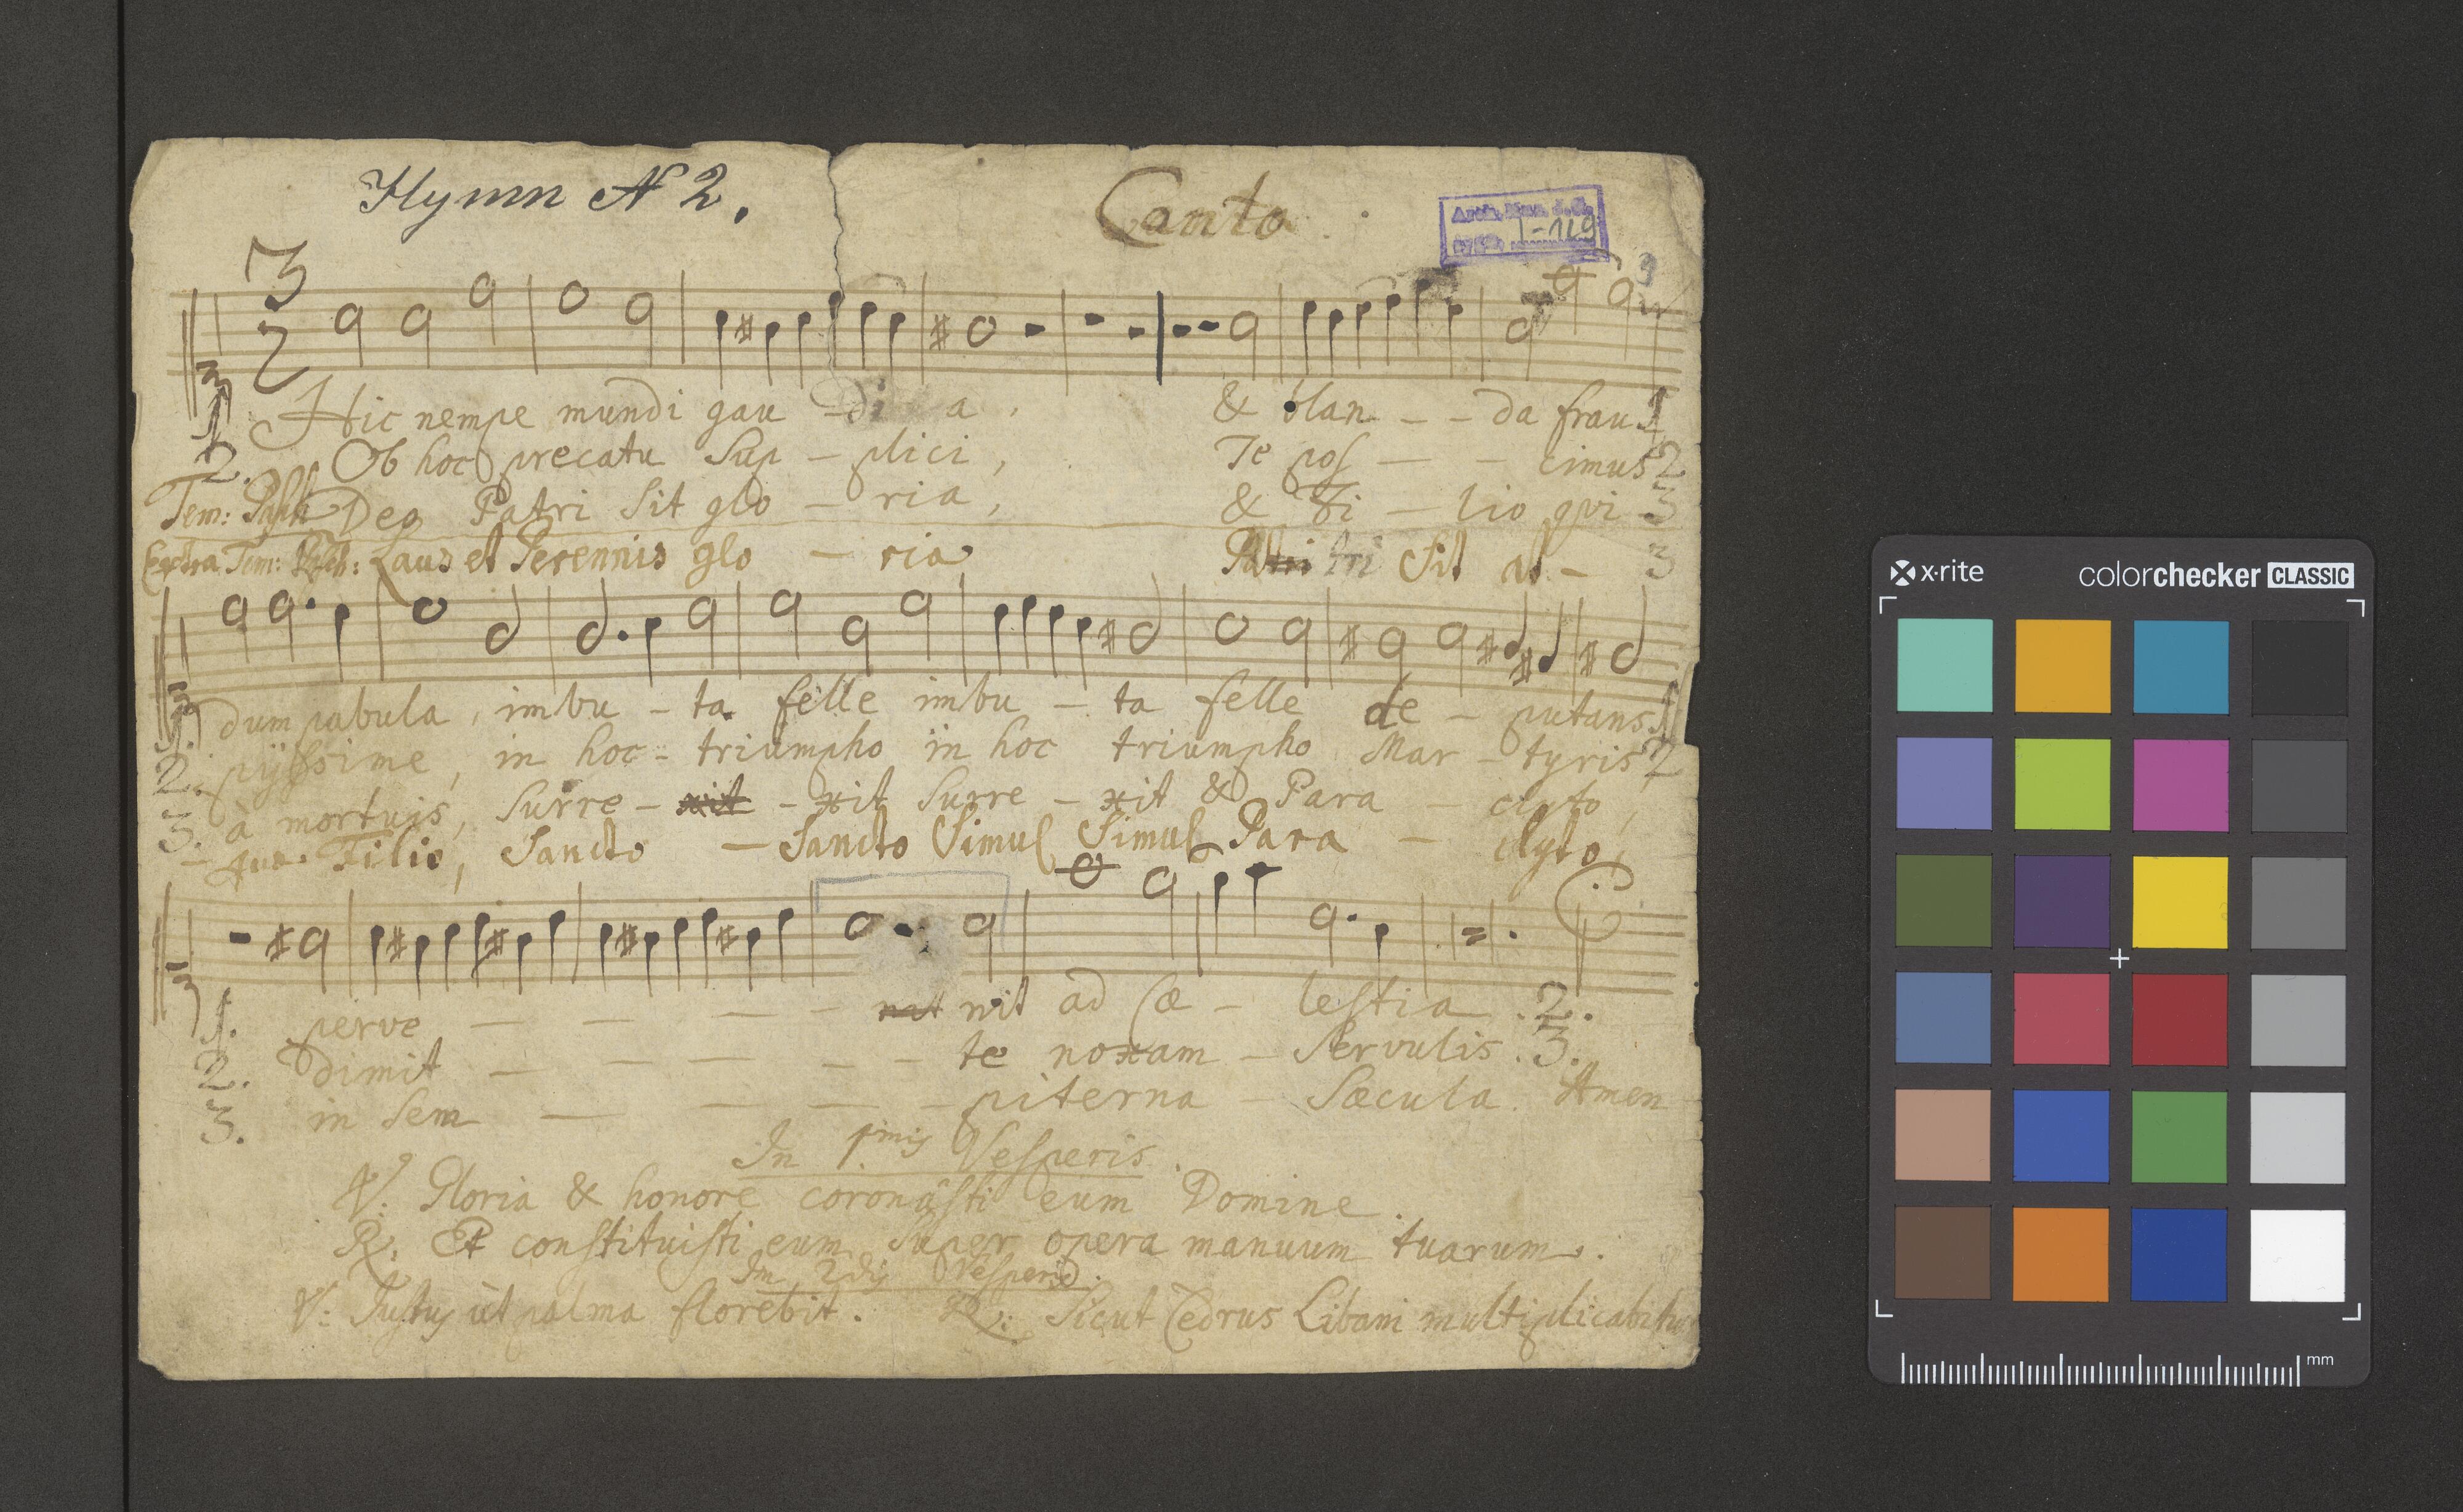 Hymn N 2.
Canto
I-129
3
2
1 Hic nempe mundi gau - di a, & blan - - da frau 1
2. Ob hoc precatu sup - plici, Te pos - - cimus 2
Tem: Pasch Deo Patri sit glo - ria, & Fi - lio qvi 3
Extra Tem: Pasch: Laus et Perennis glo - ria Patri tri sit at - 3
1. dum pabula, imbu - ta felle imbu - ta felle de - putans 1
2. pijssime, in hoc - triumpho in hoc triumpho Mar - tyris 2
3. à mortuis, surre - xit - xit surre - xit & Para - clyto,
- que Filio, Sancto - Sancto Simul Simul Para - clyto,
1. perve - - - - nit nit ad cæ - lestia. 2.
2. dimit - - - - - te noxam - servulis. 3.
3. in sem - - - - piterna - sæcula. Amen
In pmis Vesperis.
V: Gloria & honore coronâsti eum Domine.
R. Et constituisti eum super opera manuum tuarum.
In 2dis Vesperis.
V: Justus ut palma florebit. R: Sicut Cedrus Libani multiplicabitur
x·rite
colorchecker CLASSIC
mm